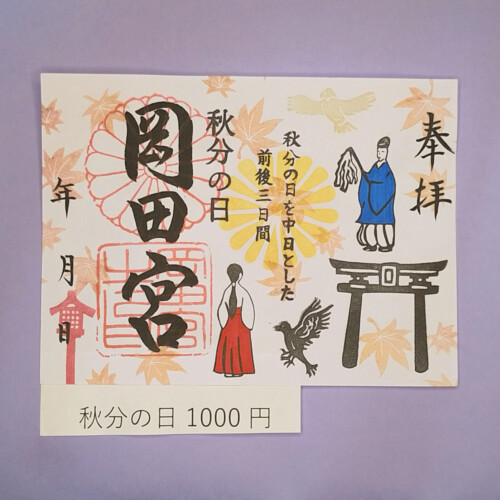 奉拝
秋分の日を中日とした
前後三日間
秋分の日
岡田宮
年
月
日
秋分の日 1000 円